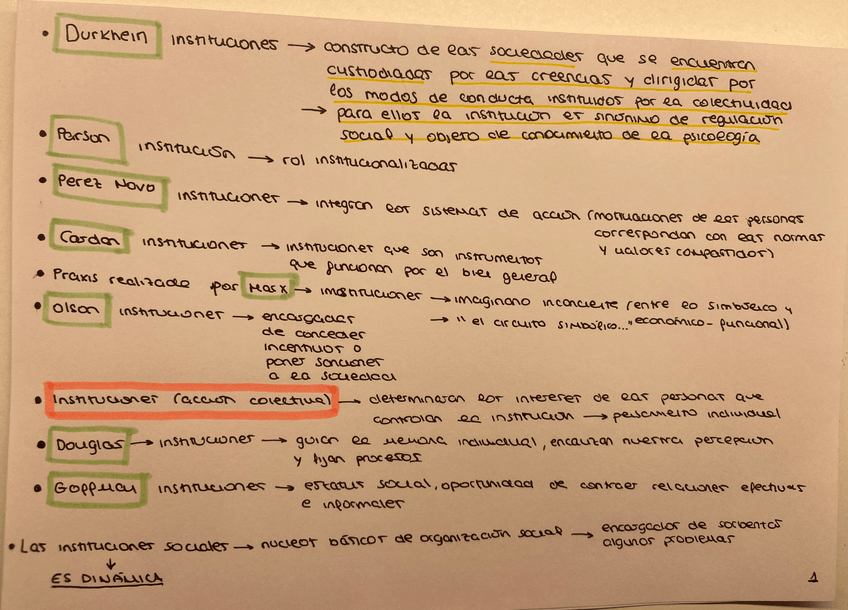 • Durkhein instituciones → constructo de las sociedades que se encuentran
custodiadas por las creencias y dirigidas por
los modos de conducta instituidos por la colectividad
→ para ellos la institución es sinónimo de regulación
social y objeto de conocimiento de la psicología
• Parson institución → rol institucionalizadas
• Perez Novo instituciones → integran los sistemas de acción (motivaciones de las personas
correspondan con las normas
y valores compartidos)
• Cardan instituciones → instituciones que son instrumentos
que funcionan por el bien general
• Praxis realizada por Marx → instituciones → imaginario inconciente (entre lo simbólico y
→ "el circuito simbólico..." económico-funcional)
• Olson instituciones → encargadas
de conceder
incentivos o
poner sanciones
a la sociedad
• Instituciones (acción colectiva) → determinaran los intereses de las personas que
controlan la institución → pensamiento individual
• Douglas → instituciones → guían la memoria individual, encauzan nuestra percepción
y fijan procesos
• Goffman instituciones → estatus social, oportunidad de contraer relaciones efectivas
e informales
• Las instituciones sociales → nucleos básicos de organización social → encargados de
algunos problemas
↓
ES DINÁMICA
1